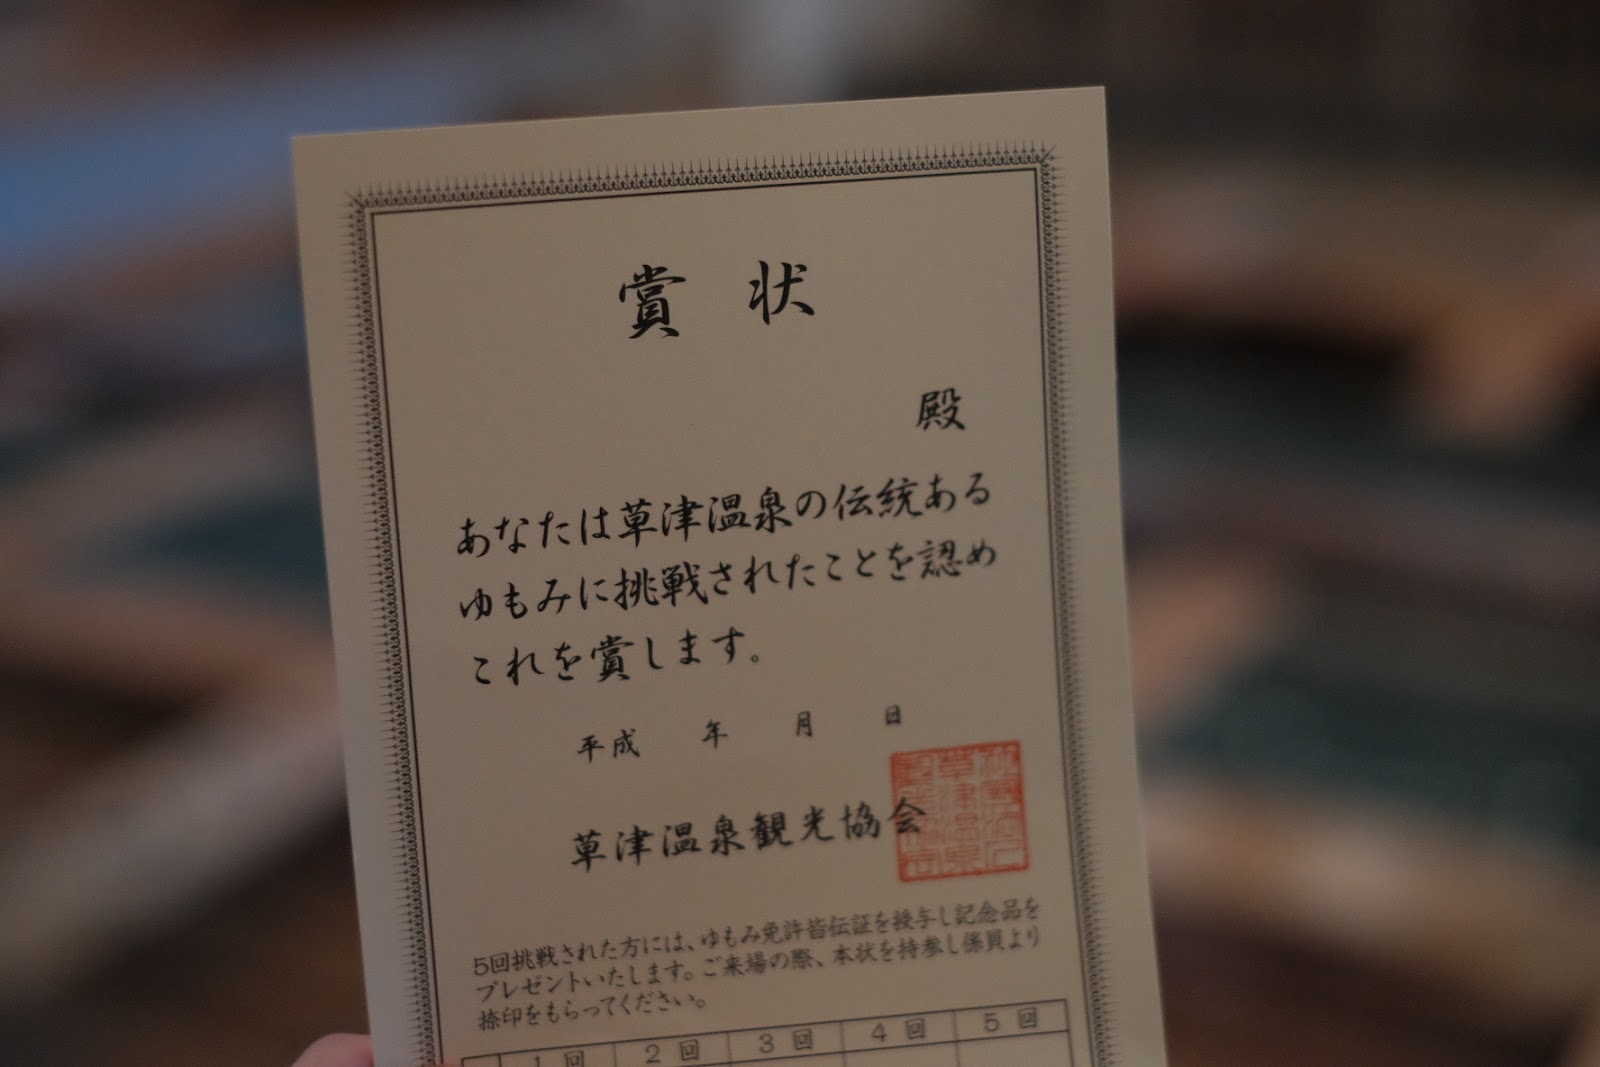 賞 状
殿
あなたは草津温泉の伝統ある
ゆもみに挑戦されたことを認め
これを賞します。
平成 年 月 日
草津温泉観光協会
5回挑戦された方には、ゆもみ免許皆伝証を授与し記念品を
プレゼントいたします。ご来場の際、本状を持参し係員より
捺印をもらってください。
1回 2回 3回 4回 5回